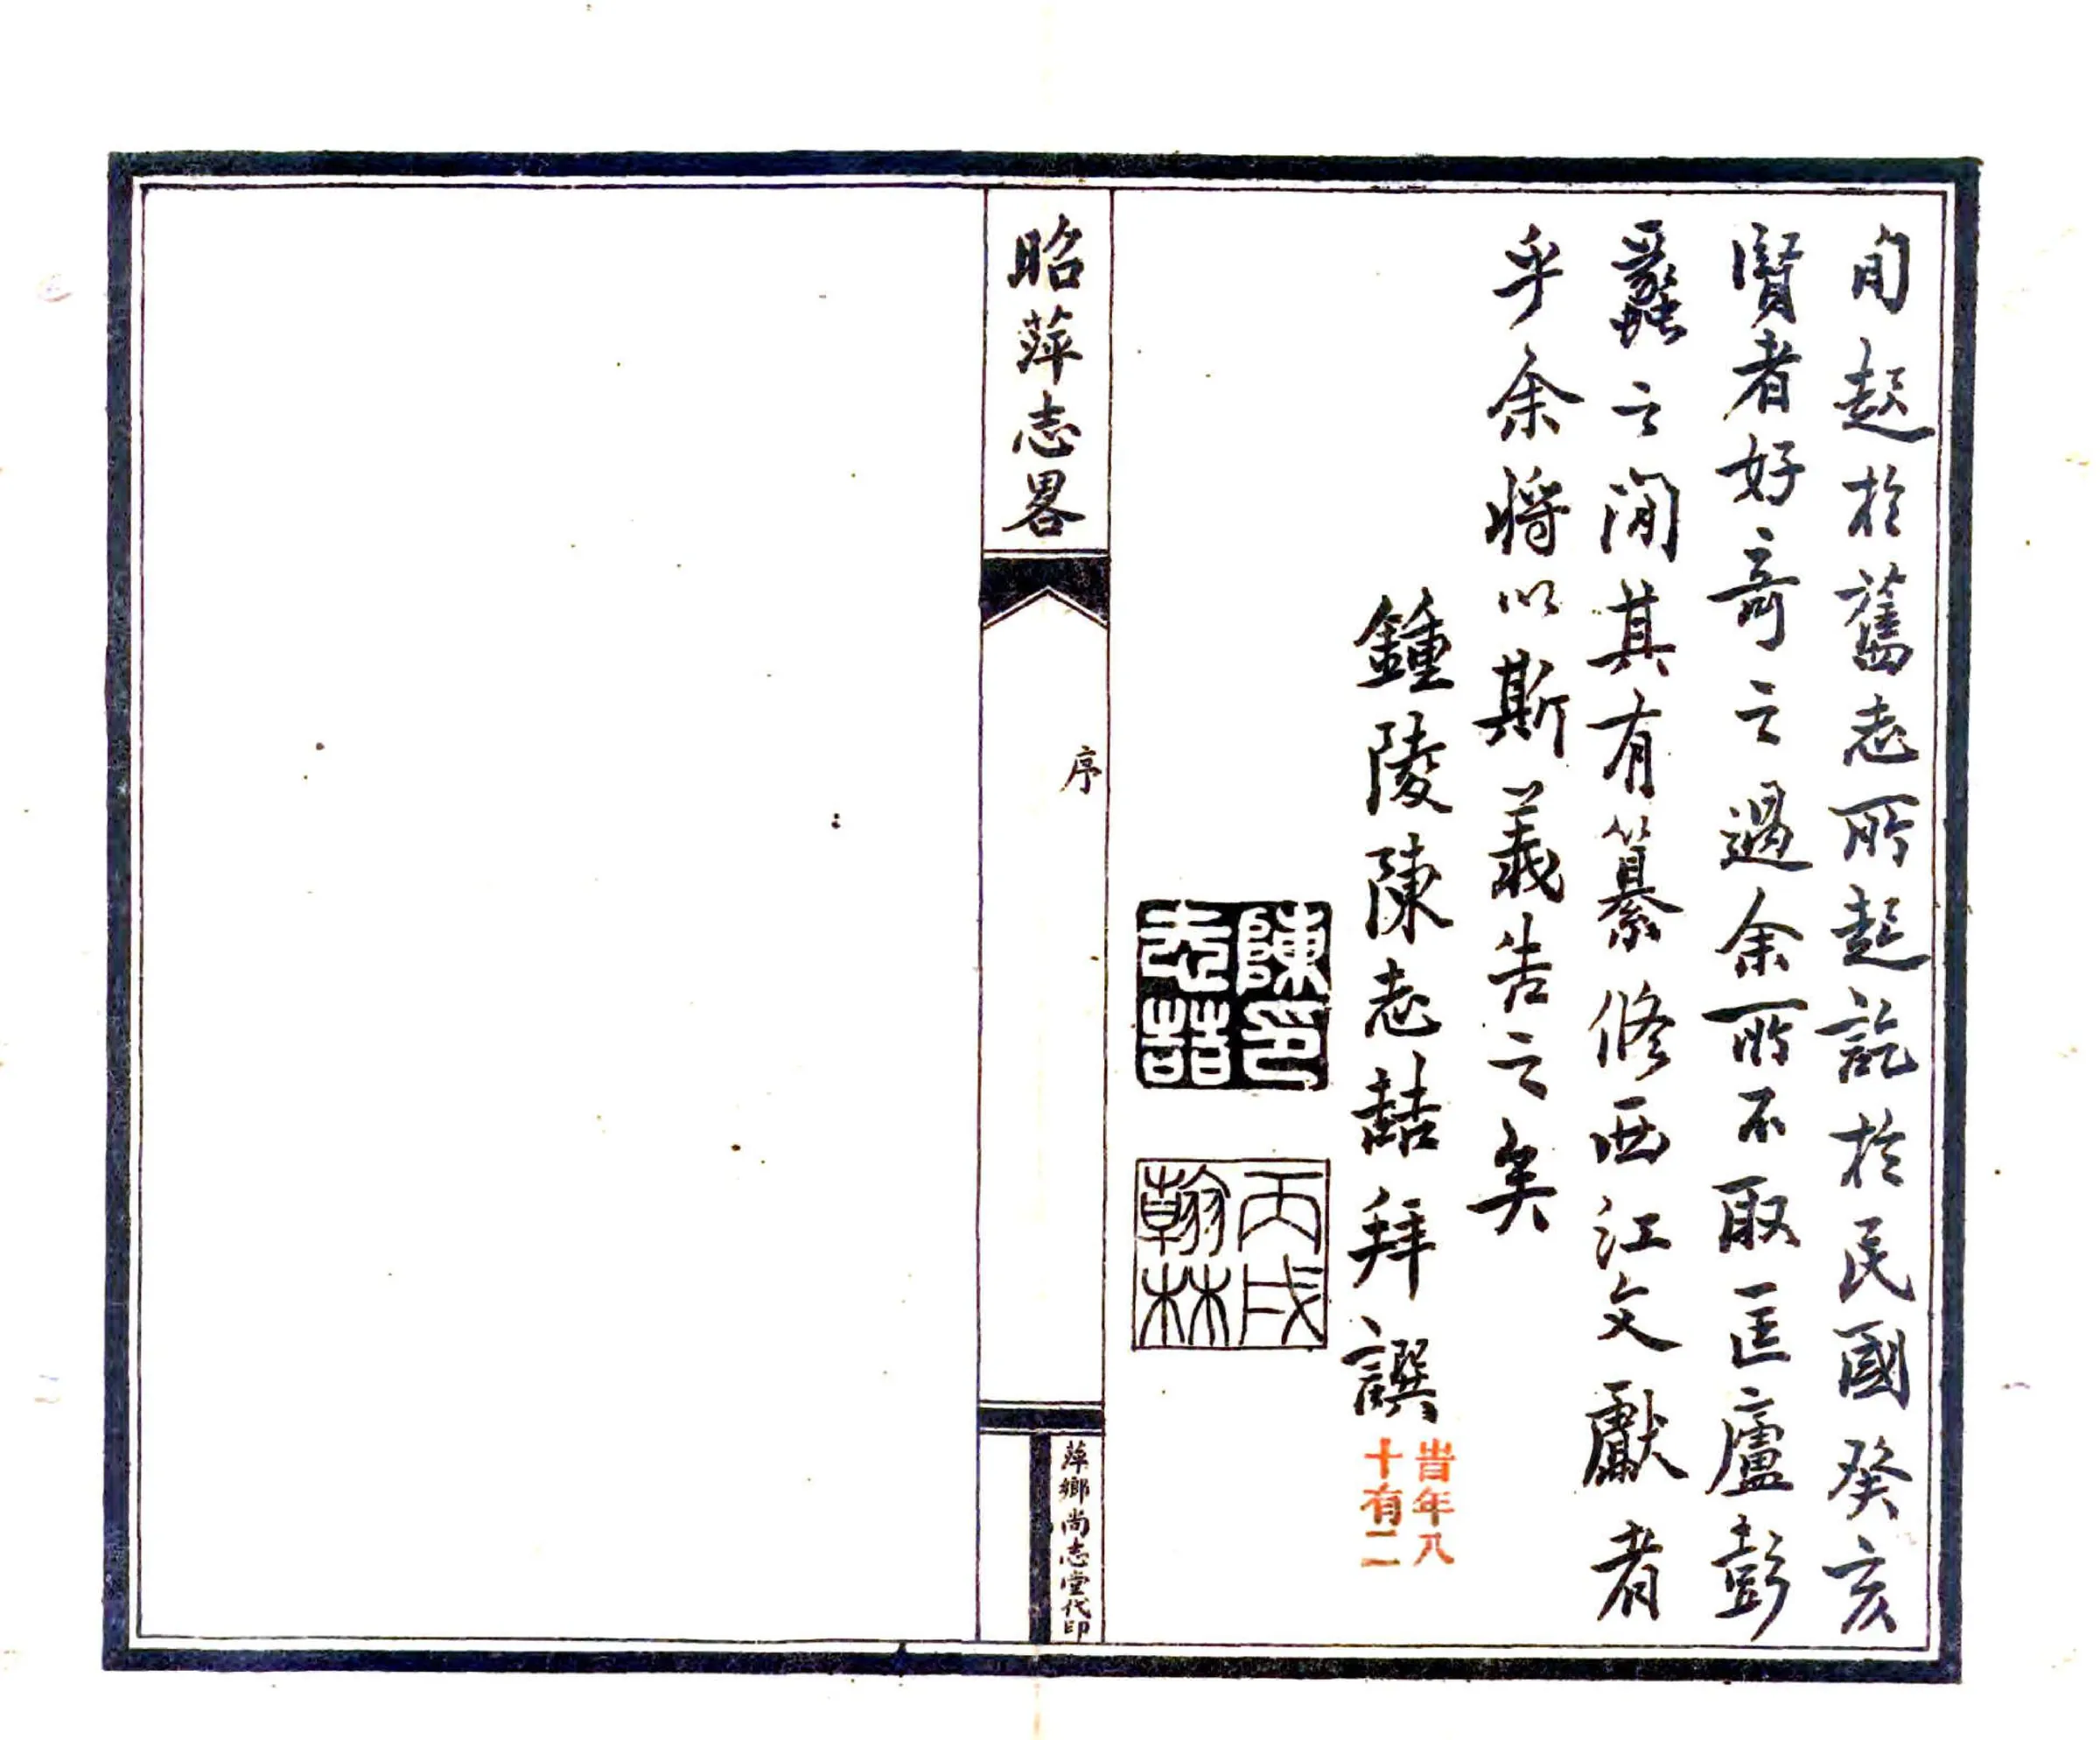 旬起於舊志所起訖於民國癸亥
賢者好奇之過余所不取匡廬彭
蠡之閒其有纂修西江文獻者
乎余將以斯義告之矣
鍾陵陳志喆拜譔
旹年八
十有二
陳印
志喆
丙戌
翰林
昭萍志畧
序
萍鄉尚志堂代印